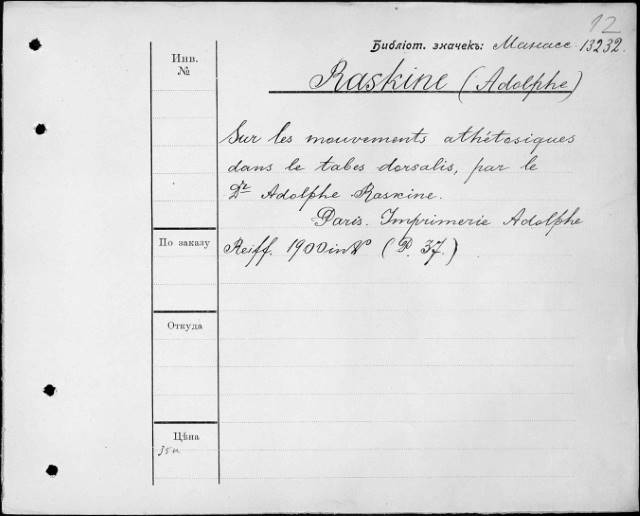 12
Библіот. значекъ: Манасс. 13232.
Инв.
№
Raskine (Adolphe)
Sur les mouvements athétosiques
dans le tabes dorsalis, par le
Dr Adolphe Raskine.
Paris. Imprimerie Adolphe
По заказу
Reiff. 1900 in (P. 37.)
Откуда
Цѣна